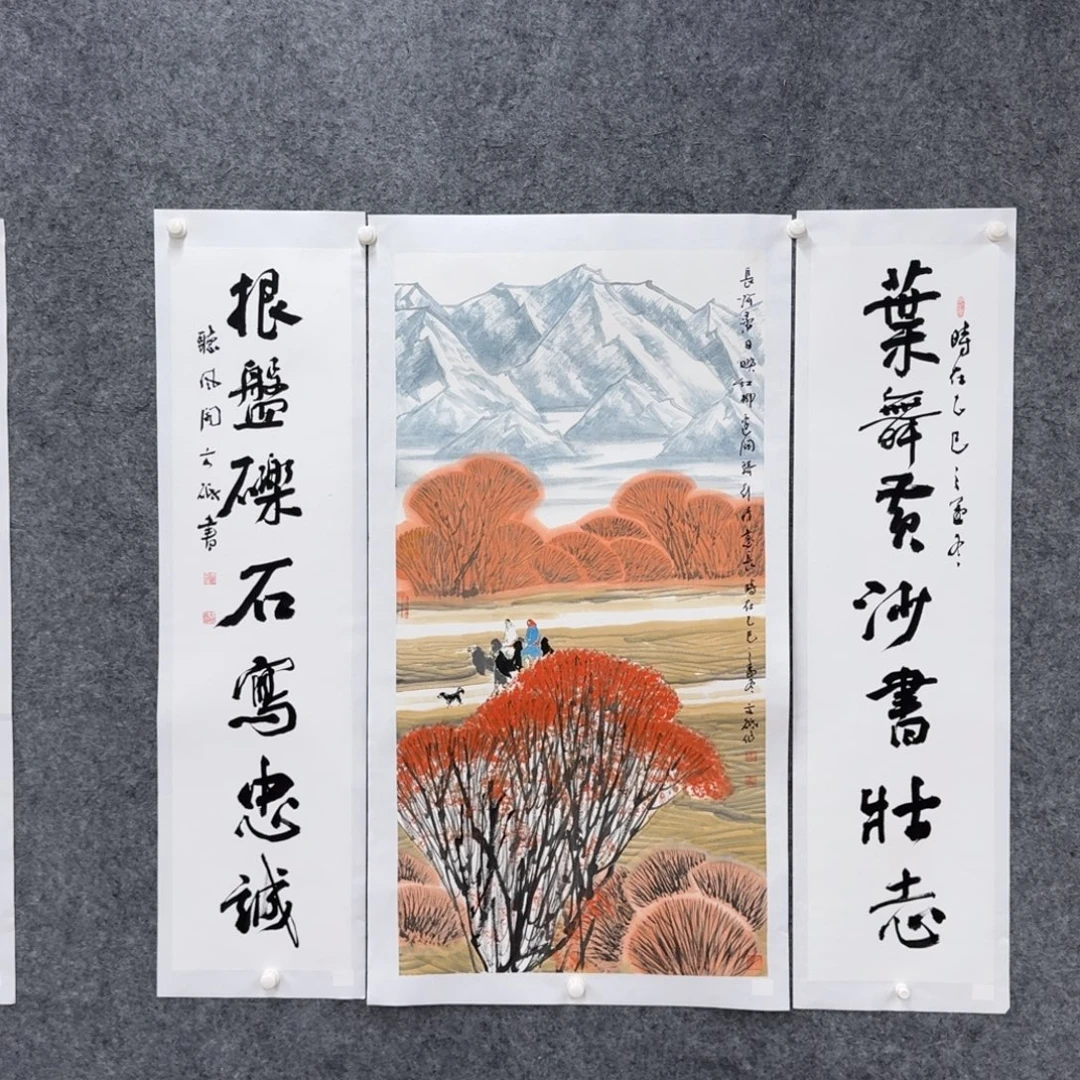 時在乙巳之孟冬
葉舞黃沙書壯志
長河落日映紅柳 時在乙巳之孟冬
根盤礫石寫忠誠
聽風閣 書